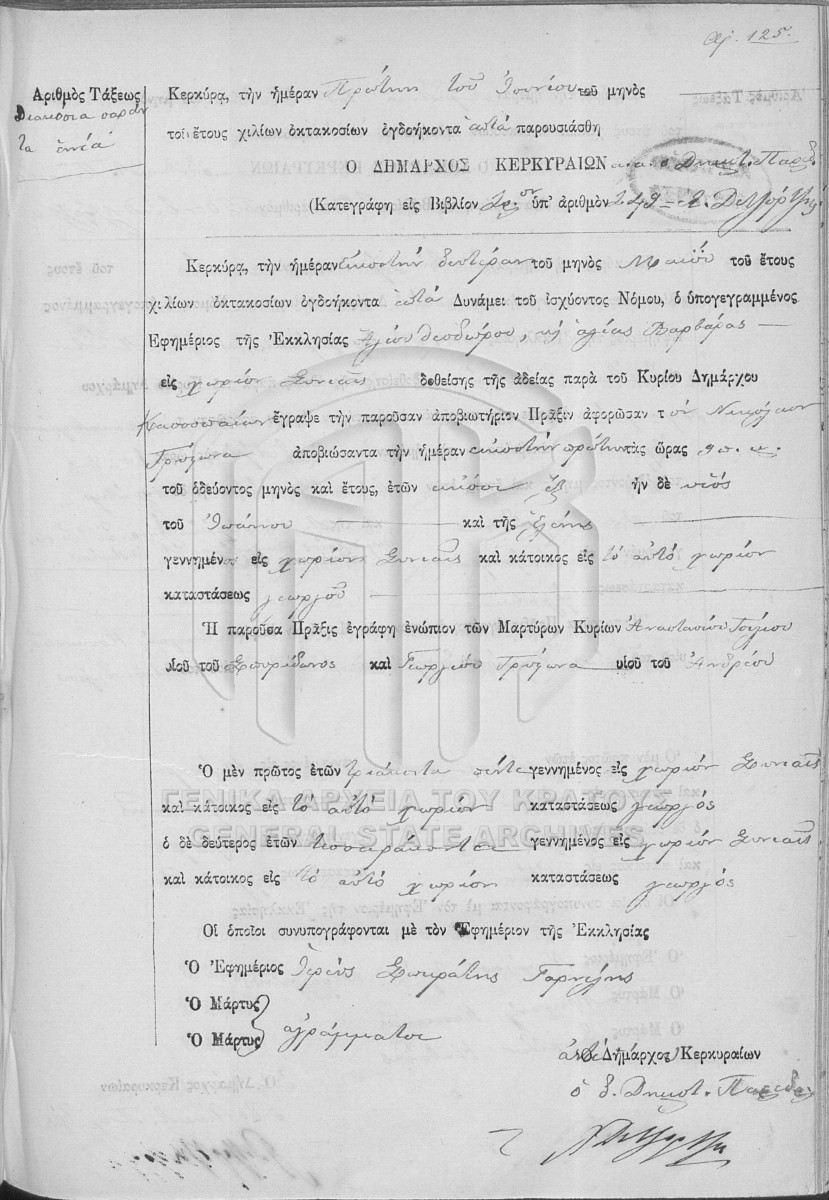 125.
Ἀριθμὸς Τάξεως
Διακόσια σαράν
τα ἐννέα
Κερκύρᾳ, τὴν ἡμέραν Πρώτην τοῦ Ἰουνίου τοῦ μηνὸς
τοῦ ἔτους χιλίων ὀκτακοσίων ὀγδοήκοντα ἑπτὰ παρουσιάσθη
Ο ΔΗΜΑΡΧΟΣ ΚΕΡΚΥΡΑΙΩΝ
(Κατεγράφη εἰς Βιβλίον ὑπ' ἀριθμὸν 249
Κερκύρᾳ, τὴν ἡμέραν Εἰκοστὴν δευτέραν τοῦ μηνὸς Μαΐου τοῦ ἔτους
χιλίων ὀκτακοσίων ὀγδοήκοντα ἑπτὰ Δυνάμει τοῦ ἰσχύοντος Νόμου, ὁ ὑπογεγραμμένος
Ἐφημέριος τῆς Ἐκκλησίας Ἁγίου Θεοδώρου, κὴ ἁγίας Βαρβάρας
εἰς χωρίον Συνιαῖς δοθείσης τῆς ἀδείας παρὰ τοῦ Κυρίου Δημάρχου
Κασσωπαίων ἔγραψε τὴν παροῦσαν ἀποβιωτήριον Πρᾶξιν ἀφορῶσαν τὸν Νικόλαον
ἀποβιώσαντα τὴν ἡμέραν εἰκοστὴν πρώτην τὰς ὥρας 9 π. μ.
τοῦ ὁδεύοντος μηνὸς καὶ ἔτους, ἐτῶν εἴκοσι ἓξ ἦν δὲ υἱὸς
τοῦ καὶ τῆς Ἑλένης
γεννημένος εἰς χωρίον Συνιαῖς καὶ κάτοικος εἰς τὸ αὐτὸ χωρίον
καταστάσεως γεωργοῦ
Ἡ παροῦσα Πρᾶξις ἐγράφη ἐνώπιον τῶν Μαρτύρων Κυρίων Ἀναστασίου
υἱοῦ τοῦ Σπυρίδωνος καὶ Γεωργίου υἱοῦ τοῦ Ἀνδρέου
Ὁ μὲν πρῶτος ἐτῶν τριάκοντα πέντε γεννημένος εἰς χωρίον Συνιαῖς
καὶ κάτοικος εἰς τὸ αὐτὸ χωρίον καταστάσεως γεωργός
ὁ δὲ δεύτερος ἐτῶν τεσσαράκοντα γεννημένος εἰς χωρίον Συνιαῖς
καὶ κάτοικος εἰς τὸ αὐτὸ χωρίον καταστάσεως γεωργός
Οἱ ὁποῖοι συνυπογράφονται μὲ τὸν Ἐφημέριον τῆς Ἐκκλησίας
Ὁ Ἐφημέριος Ἱερεὺς
Ὁ Μάρτυς
Ὁ Μάρτυς ἀγράμματοι
Ὁ Δήμαρχος Κερκυραίων
ΓΕΝΙΚΑ ΑΡΧΕΙΑ ΤΟΥ ΚΡΑΤΟΥΣ
GENERAL STATE ARCHIVES